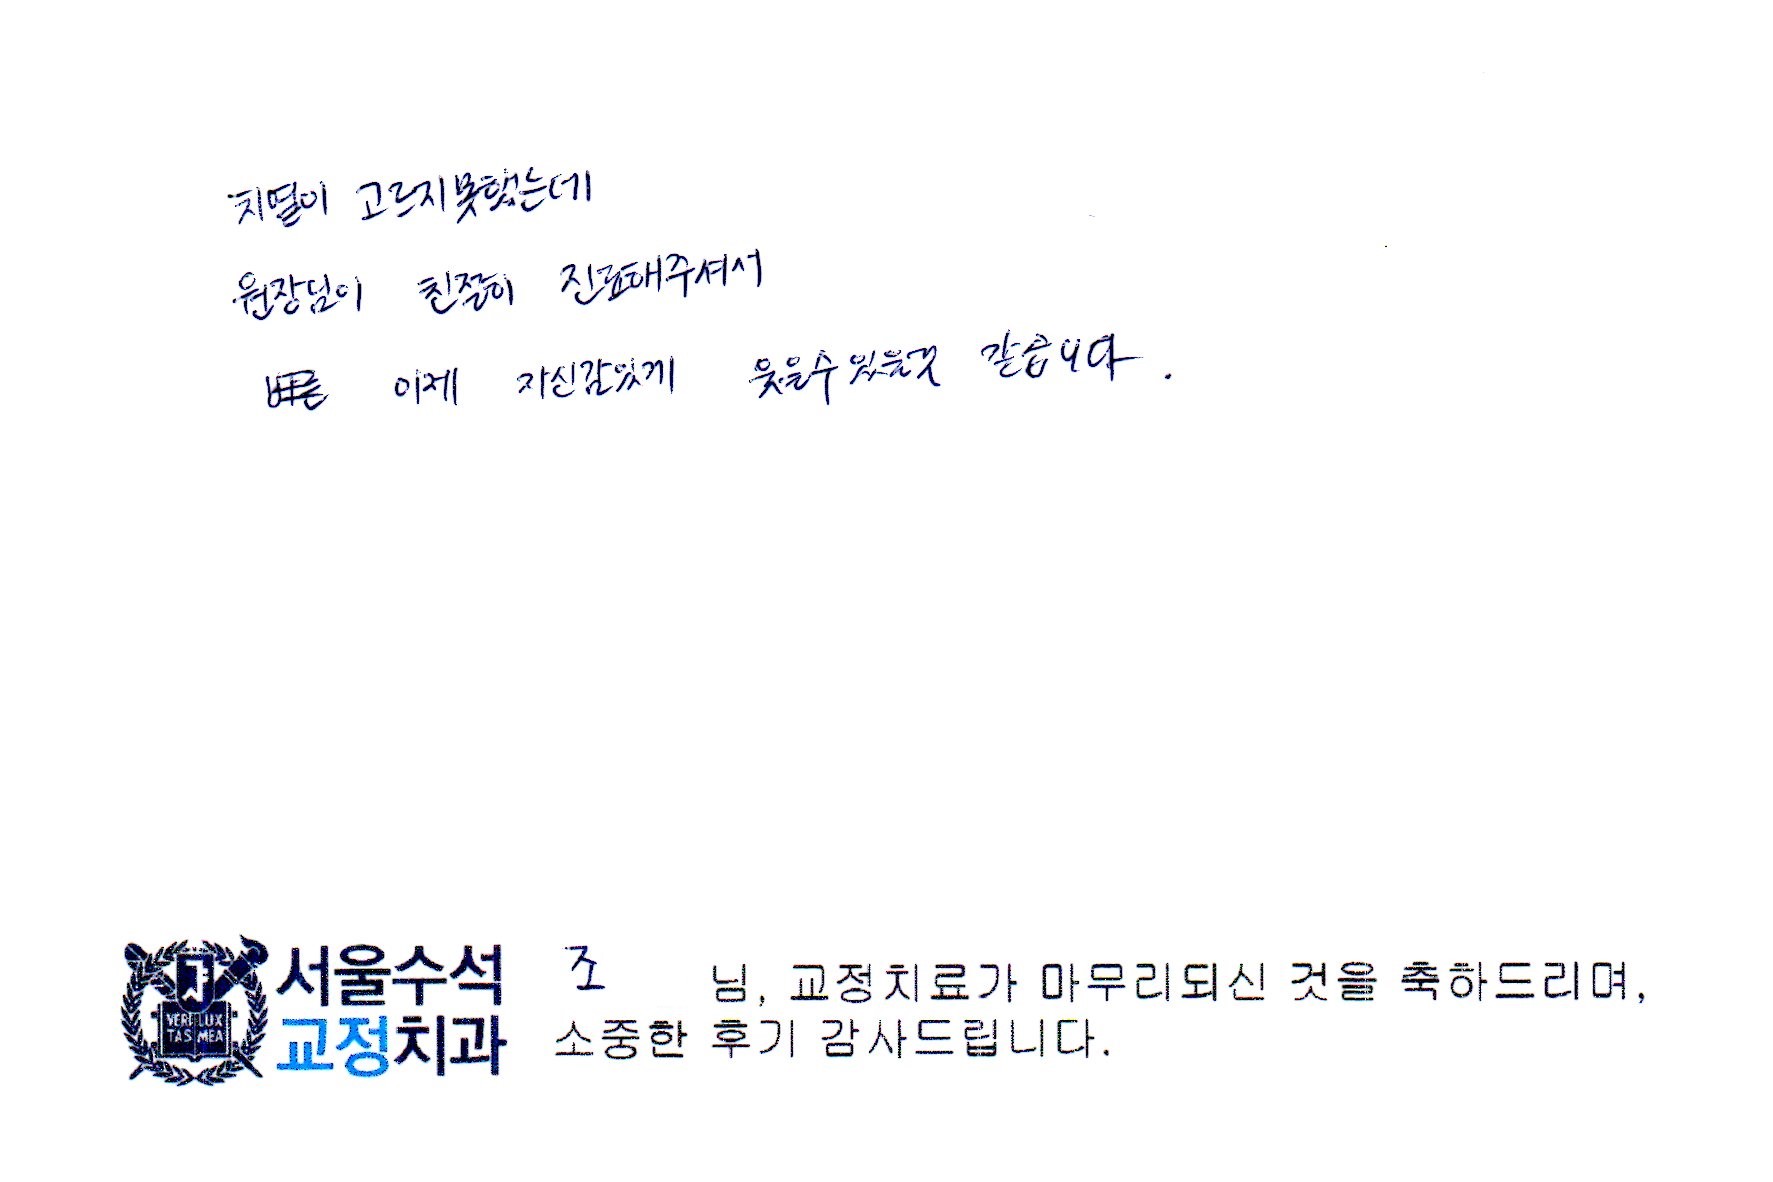 치열이 고르지못했는데
원장님이 친절히 진료해주셔서
이제 자신감있게 웃을수있을것 같습니다.
서울수석
교정치과
VERI LUX
TAS MEA
조 님, 교정치료가 마무리되신 것을 축하드리며,
소중한 후기 감사드립니다.